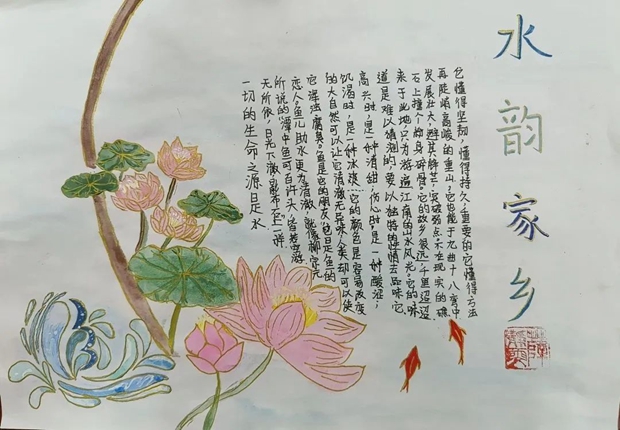 水韵家乡
它懂得坚韧,懂得持久,重要的它懂得方法
再陡峭高峻的重山,它也能于九曲十八弯中
发展壮大,避其锋芒,突破弱点,不在现实的礁
石上撞个粉身碎骨。它的故乡很远,千里迢迢
来于此地,只为游遍江南的山水风光。它的味
道是难以填测的,要以独特的心情去品味它,
高兴时,是一种清甜,伤心时,是一种酸涩,
饥渴时,是一种冰爽…它的颜色是容易改变
的大自然可以让它清澈无异味,人类却可以使
它浑浊腐臭。鱼是它的朋友,它是鱼的
恋人。鱼儿助水更为清澈,就像柳宗元
所说的"潭中鱼可百许头,皆若空游
无所依,日光下澈,影布石上"一样
一切的生命之源是水